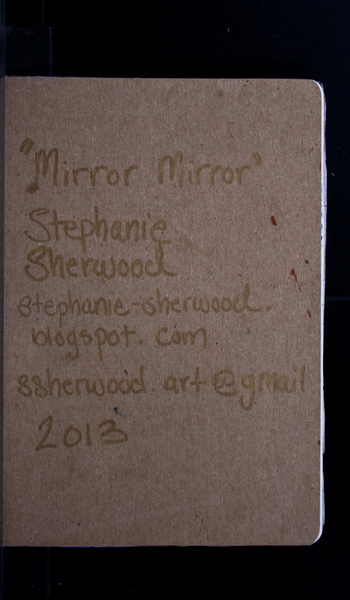 "Mirror Mirror"
Stephanie
Sherwood
stephanie-sherwood.
blogspot. com
ssherwood.art@gmail
2013